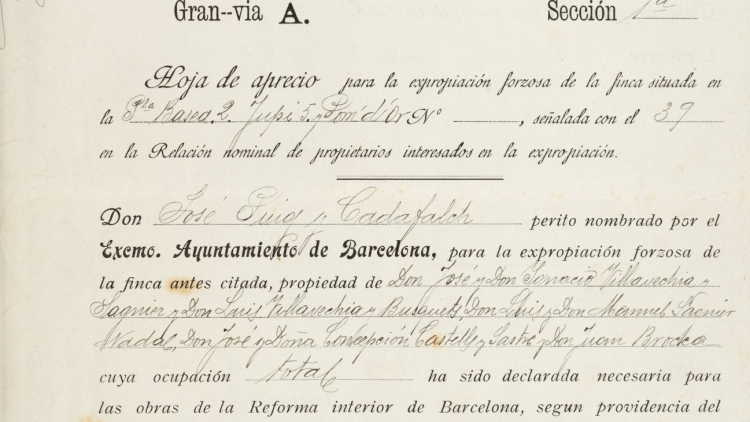 Gran--via A. Sección 1ª
Hoja de aprecio para la expropiación forzosa de la finca situada en
la Pla. Basea, 2. Jupi 5. y Pom d'Or Nº , señalada con el 39
en la Relación nominal de propietarios interesados en la expropiación.
Don José Puig y Cadafalch perito nombrado por el
Excmo. Ayuntamiento de Barcelona, para la expropiación forzosa de
la finca antes citada, propiedad de Don José y Don Ignacio Villavechia y
Sagnier y Don Luis Villavechia y Busquets, Don Lluis y Don Manuel Sagnier
Nadal, Don José y Doña Concepción Castells y Sastre y Don Juan
cuya ocupación total ha sido declarada necesaria para
las obras de la Reforma interior de Barcelona, segun providencia del